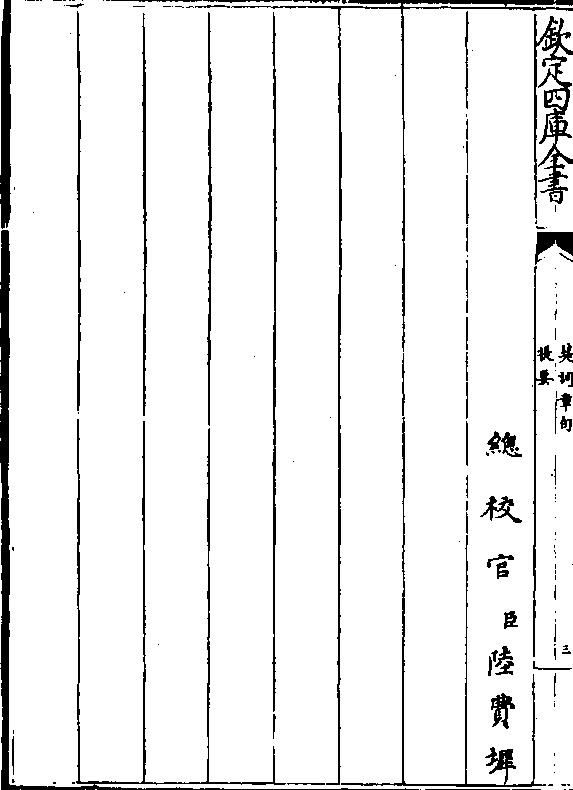 欽定四庫全書
楚詞章句
提要
三
總校官臣陸費墀